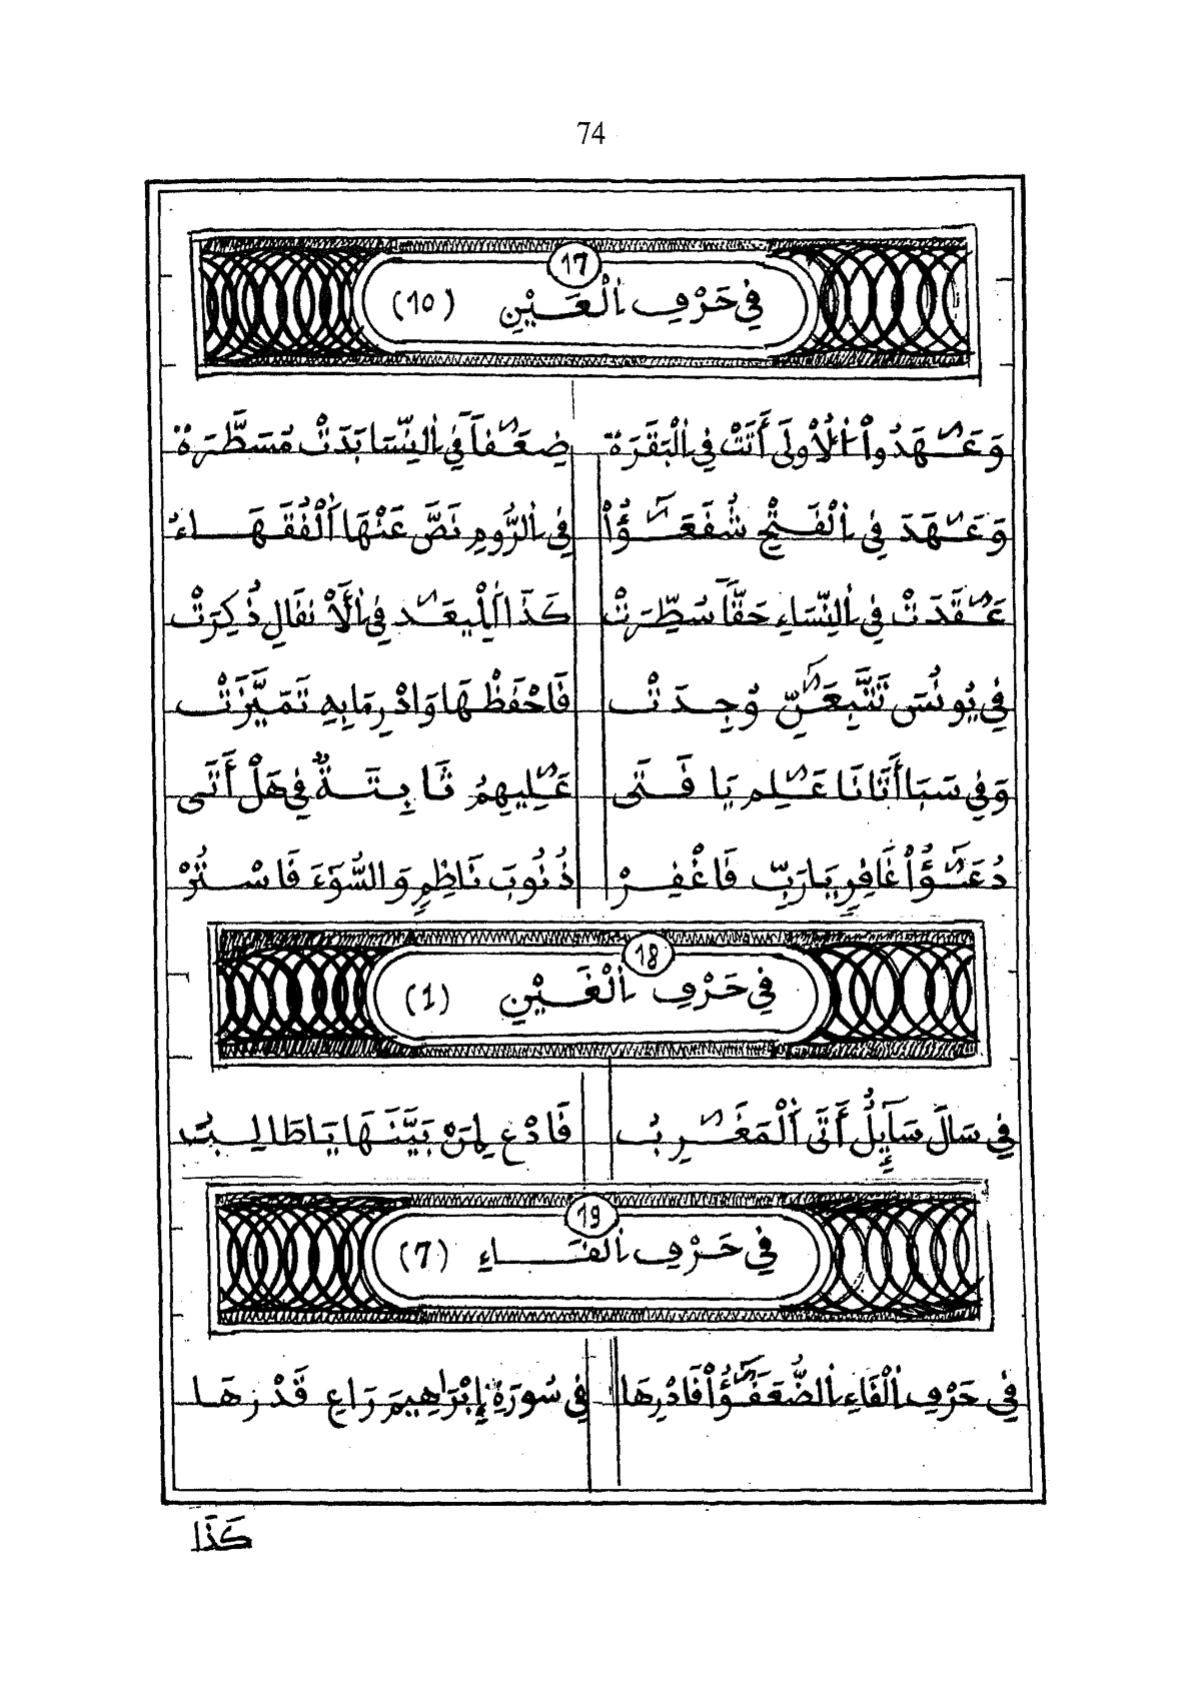 74
17
فِي حَرْفِ اْلْعَيْنِ (10)
وَعَـٰهَدُواْ اْلْأُولَى أَتَتْ فِي اْلْبَقَرَة ضِعَـٰفاً فِي اْلنِّسَا بَدَتْ مُسَطَّرَة
وَعَـٰهَدَ فِي اْلْفَتْحِ شُفَعَـٰٓؤُاْ فِي اْلرُّومِ نَصَّ عَنْهَا اْلْفُقَهَاءُ
عَـٰقَدَتْ فِي اْلنِّسَاءِ حَقّاً سُطِّرَتْ كَذَا اْلْمِيعَـٰدِ فِي اْلْأَنْفَالِ ذُكِرَتْ
فِي يُونُسَ تَتَّبِعَـٰٓنِّ وُجِدَتْ فَاحْفَظْهَا وَادْرِ مَا بِهِ تَمَيَّزَتْ
وَفِي سَبَا أَتَانَا عَـٰلِمِ يَا فَتَى عَـٰلِيهِمُ ثَابِتَةٌ فِي هَلْ أَتَى
دُعَـٰٓؤُاْ غَافِرٍ يَا رَبِّ فَاغْفِرْ ذُنُوبَ نَاظِمٍ وَالسُّوءَ فَاسْتُرْ
18
فِي حَرْفِ اْلْغَيْنِ (1)
فِي سَالَ سَآئِلٌ أَتَى اْلْمَغَـٰرِبُ فَادْعِ لِمَنْ بَيَّنَهَا يَا طَالِبُ
19
فِي حَرْفِ اْلْفَاءِ (7)
فِي حَرْفِ اْلْفَاءِ اْلضُّعَفَـٰٓؤُاْ فَادْرِهَا فِي سُورَةِ إِبْرَاهِيمَ رَاعِ قَدْرَهَا
كَذَا